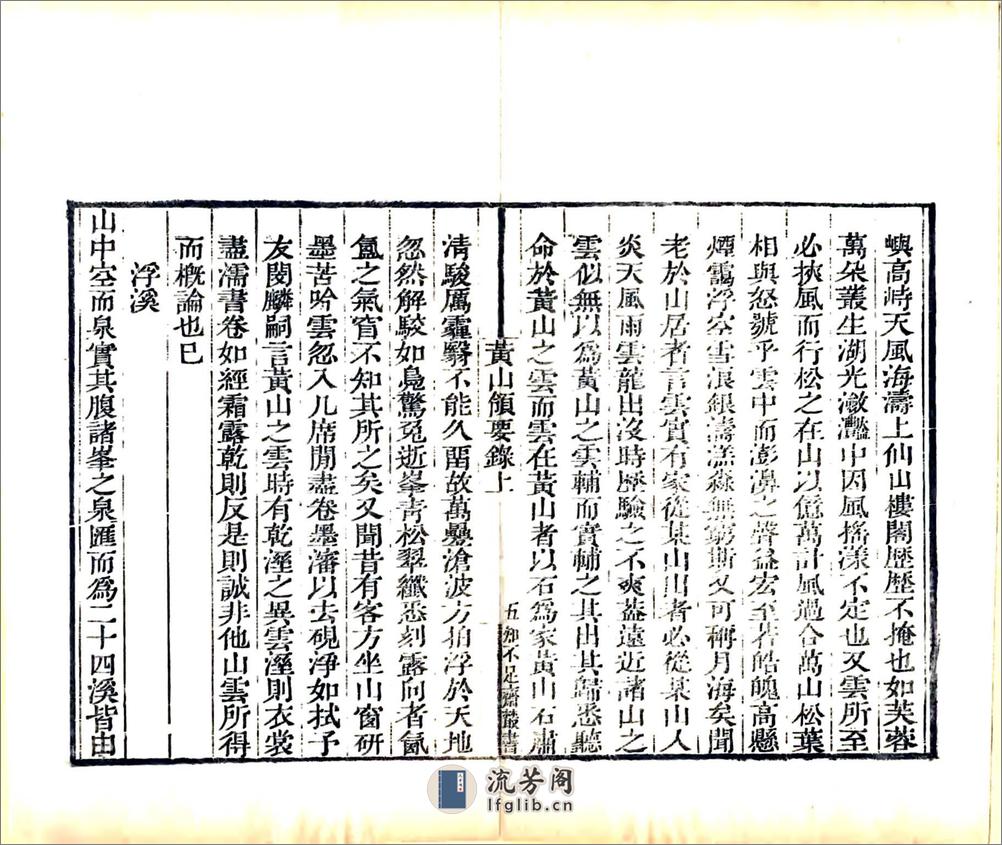 嶼高峙天風海濤上仙山樓閣歷歷不掩也如芙蓉
萬朵叢生湖光瀲灧中因風搖漾不定也又雲所至
必挾風而行松之在山以億萬計風過合萬山松葉
相與怒號乎雲中而澎濞之聲益宏至若皓魄高懸
煙靄浮空雪浪銀濤漾淼無窮斯又可稱月海矣聞
老於山居者言雲實有家從某山出者必從某山入
炎天風雨雲龍出沒時歷驗之不爽蓋遠近諸山之
雲似無以爲黃山之雲輔而實輔之其出其歸悉聽
命於黃山之雲而雲在黃山者以石爲家黃山石肅
黃山領要錄上
五知不足齋叢書
清駿厲霾翳不能久畱故萬疊滄波方拍浮於天地
忽然解駮如鳧驚兎逝峯靑松翠纖悉刻露向者氤
氳之氣窅不知其所之矣又聞昔有客方坐山窗研
墨苦吟雲忽入几席閒盡卷墨瀋以去硯淨如拭予
友閔麟嗣言黃山之雲時有乾溼之異雲溼則衣裳
盡濡書卷如經霜露乾則反是則誠非他山雲所得
而槪論也已
浮溪
山中空而泉實其腹諸峯之泉匯而爲二十四溪皆由
流芳阁
lfglib.cn